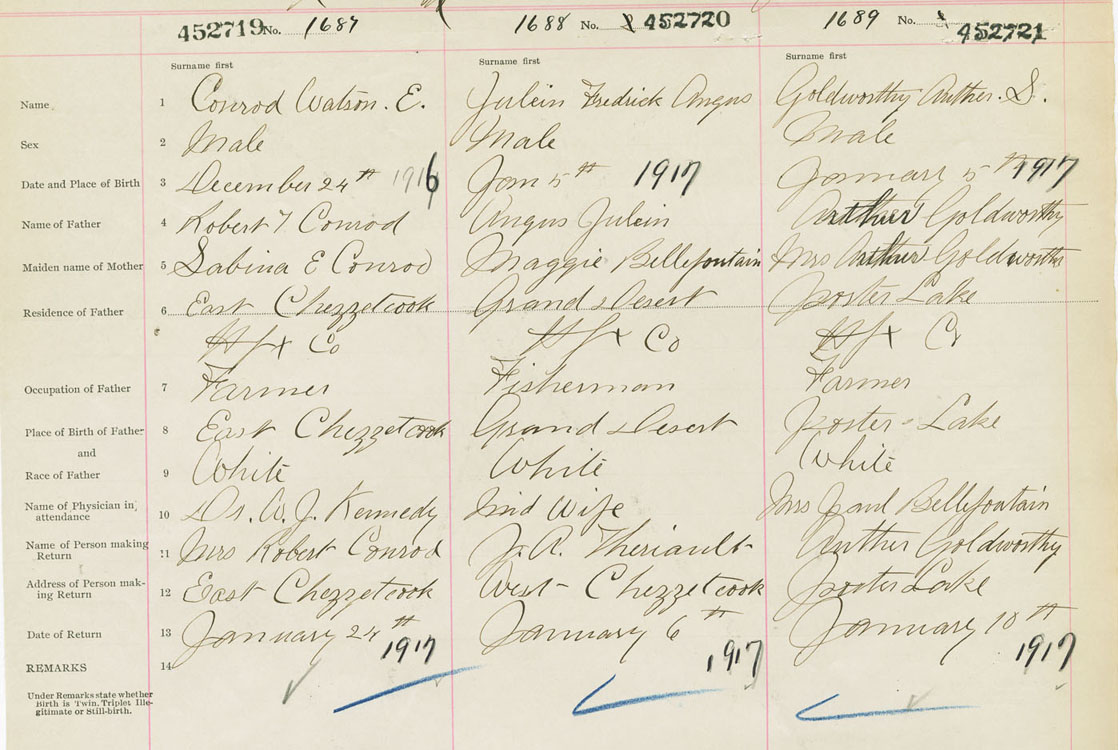 452719 No. 1687
1688 No. 452720
1689 No. 452721
Surname first Surname first Surname first
Name 1 Conrod Watson. E. Julein Fredrick Angus Goldworthy Arther. S.
Sex 2 Male Male Male
Date and Place of Birth 3 December 24th 1916 Jan 5th 1917 January 5th 1917
Name of Father 4 Robert Conrod Angus Julein Arther Goldworthy
Maiden name of Mother 5 Sabina E Conrod Maggie Bellefontain Mrs Arther Goldworthy
Residence of Father 6 East Chezzetcook Grand Desert Porter Lake
Hfx Co Hfx Co Hfx Co
Occupation of Father 7 Farmer Fisherman Farmer
Place of Birth of Father 8 East Chezzetcook Grand Desert Porter Lake
and
Race of Father 9 White White White
Name of Physician in attendance 10 Dr. W. J. Kennedy Mid Wife Mrs Paul Bellefontain
Name of Person making Return 11 Mrs Robert Conrod J. R. Theriault Arther Goldworthy
Address of Person mak-
ing Return 12 East Chezzetcook West Chezzetcook Porter Lake
Date of Return 13 January 24th 1917 January 6th 1917 January 10th 1917
REMARKS 14
Under Remarks state whether
Birth is Twin. Triplet Ille-
gitimate or Still-birth.